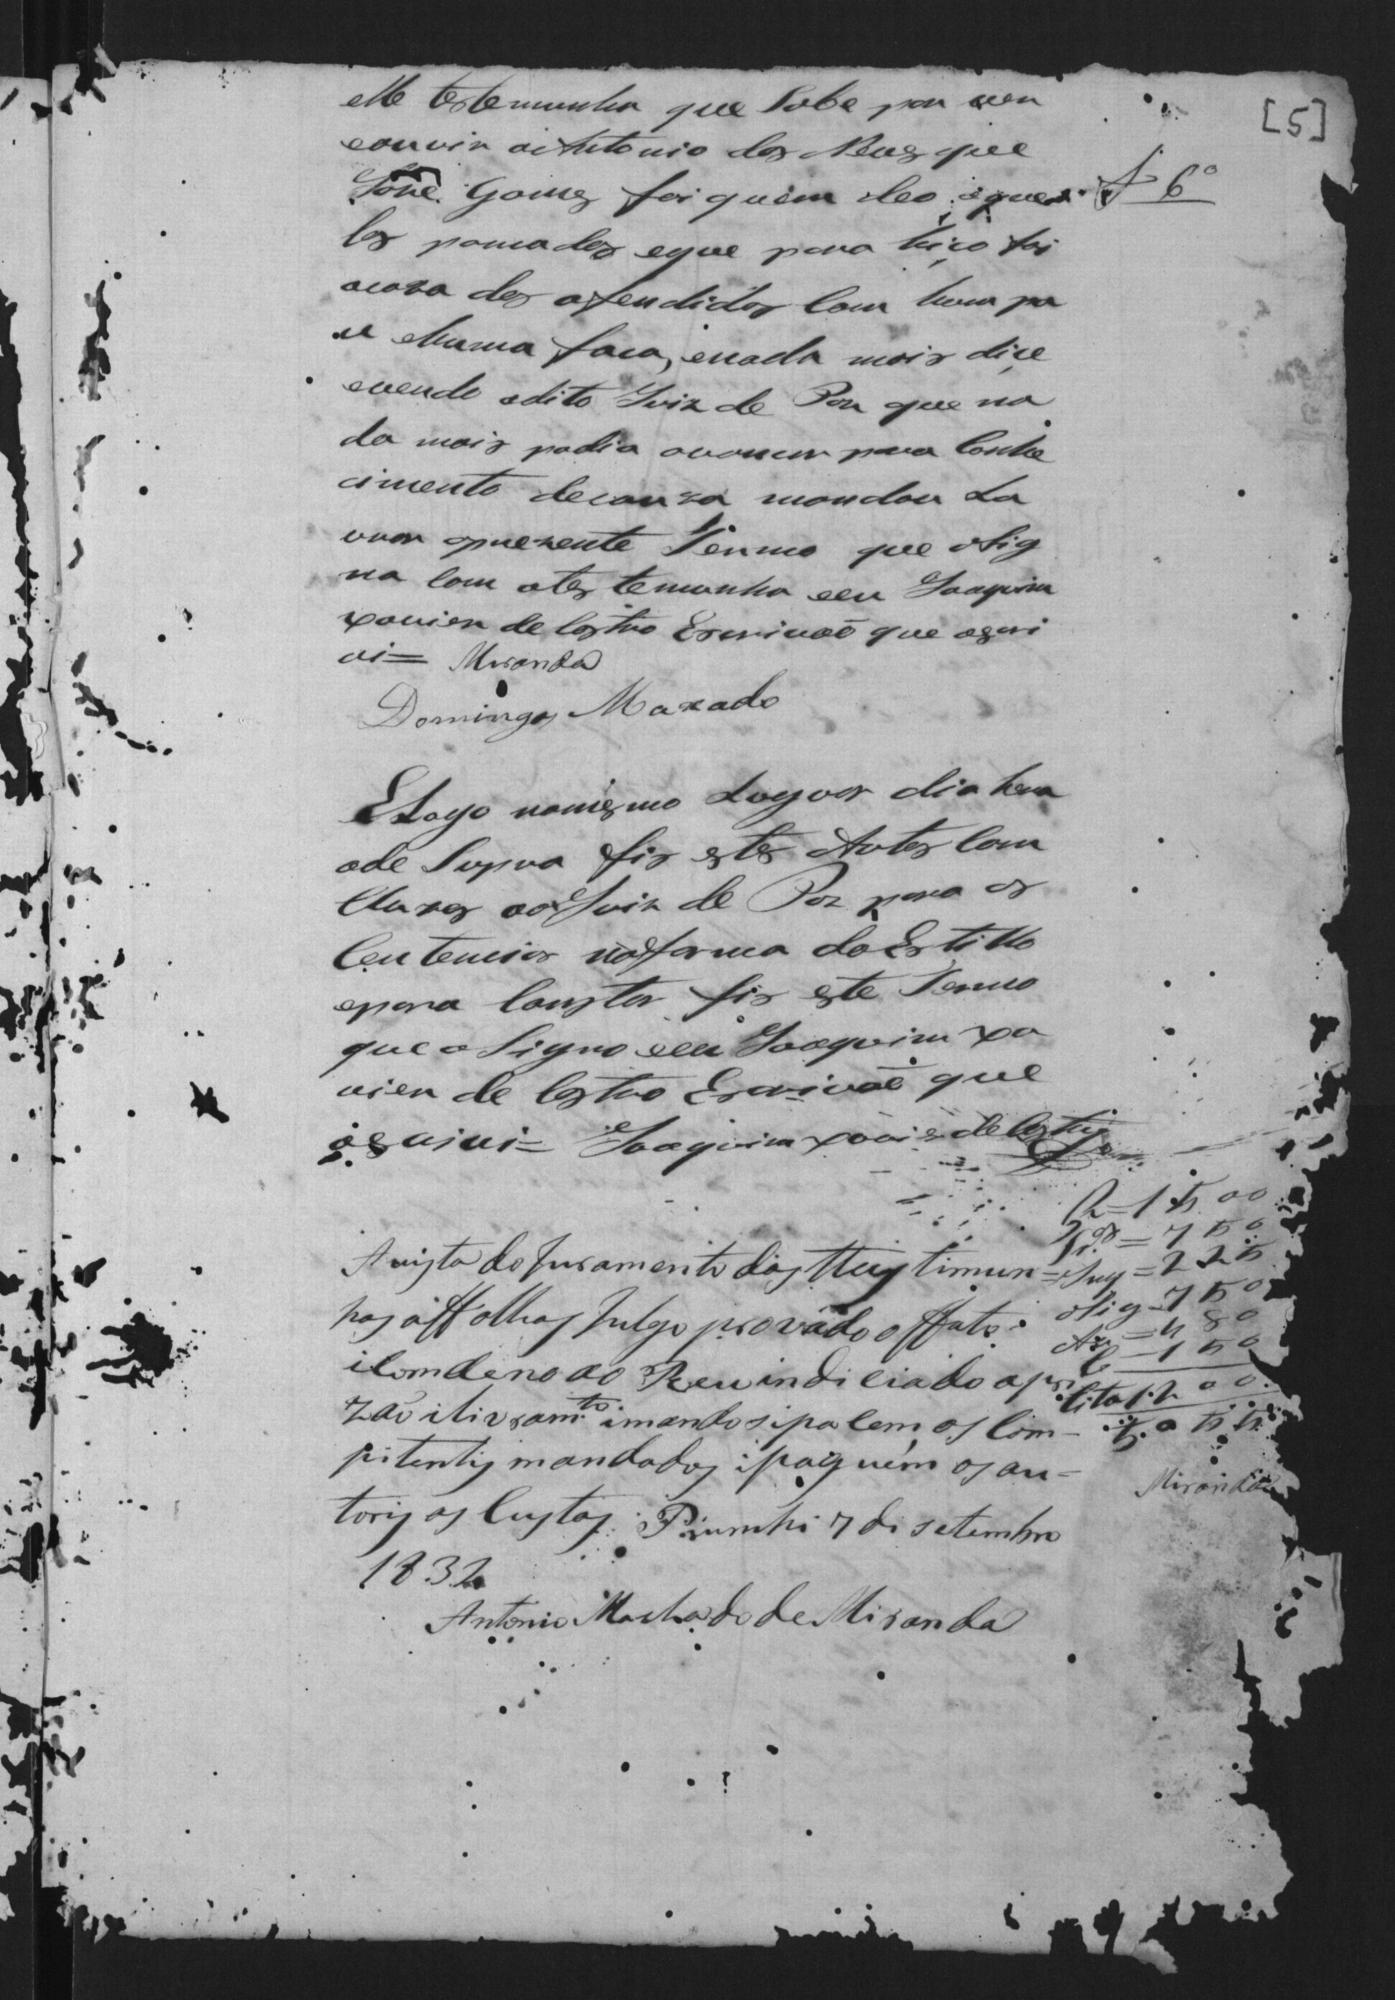 [5]
elle testemunha que Sabe por ver
eouvir a Antonio dos Reys que
Jose Gomes foi quem deo aquel
les pancados eque para hiço foi
acaza dos ofendidos Com hum pa
u ehuma faca, enada mais diçe
evendo odito Juiz de Paz que na
da mais podia avancar para Conhe
cimento decauza mandou La
vrar oprezente Termo que asig
na Com ates temunha eeu Joaquim
xavier de Castro Escrivaõ que escri
vi = Miranda
Domingos Maxado
f 6º
ELogo nomesmo Lugar dia hera
ade Supra fis estes Autos Com
Cluzos ao Juiz de Paz para os
Centenciar naforma do Estillo
epara Constar fis este Termo
que aSigno eeu Joaquim xa
vier de Castro Escrivaõ que
escrivi = Joaquim xavier de Castro
Avista do Juramento das ttestimun =
has áffolhas Julgo provado offato
icomdeno ao Reu indiciado apri
zaõ ilivramto imando sipacem os Com-
pitentis mandados ipaguem os au =
toris as Custas Piumhi 7 di setembro
1832
Antonio Machado de Miranda
= 150
= 225
asig = 750
= 480
= 150
Miranda